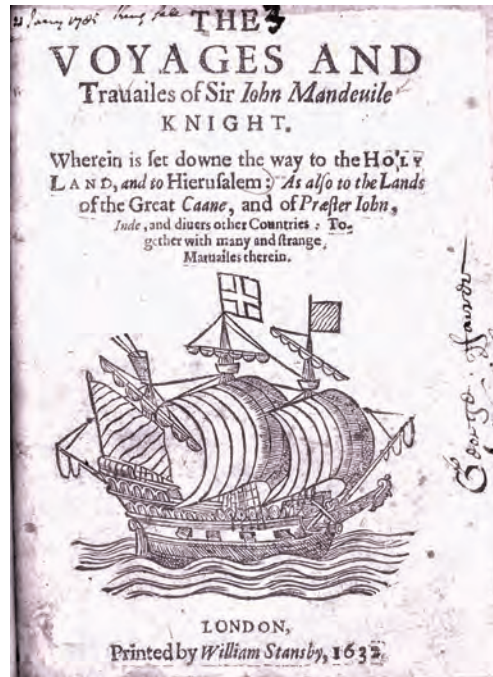 THE
VOYAGES AND
Trauailes of Sir Iohn Mandeuile
KNIGHT.
Wherein is ſet downe the way to the HOLY
LAND, and to Hieruſalem: As alſo to the Lands
of the Great Caane, and of Præſter Iohn,
Inde, and diuers other Countries: To-
gether with many and ſtrange
Maruailes therein.
LONDON,
Printed by William Stansby, 1632